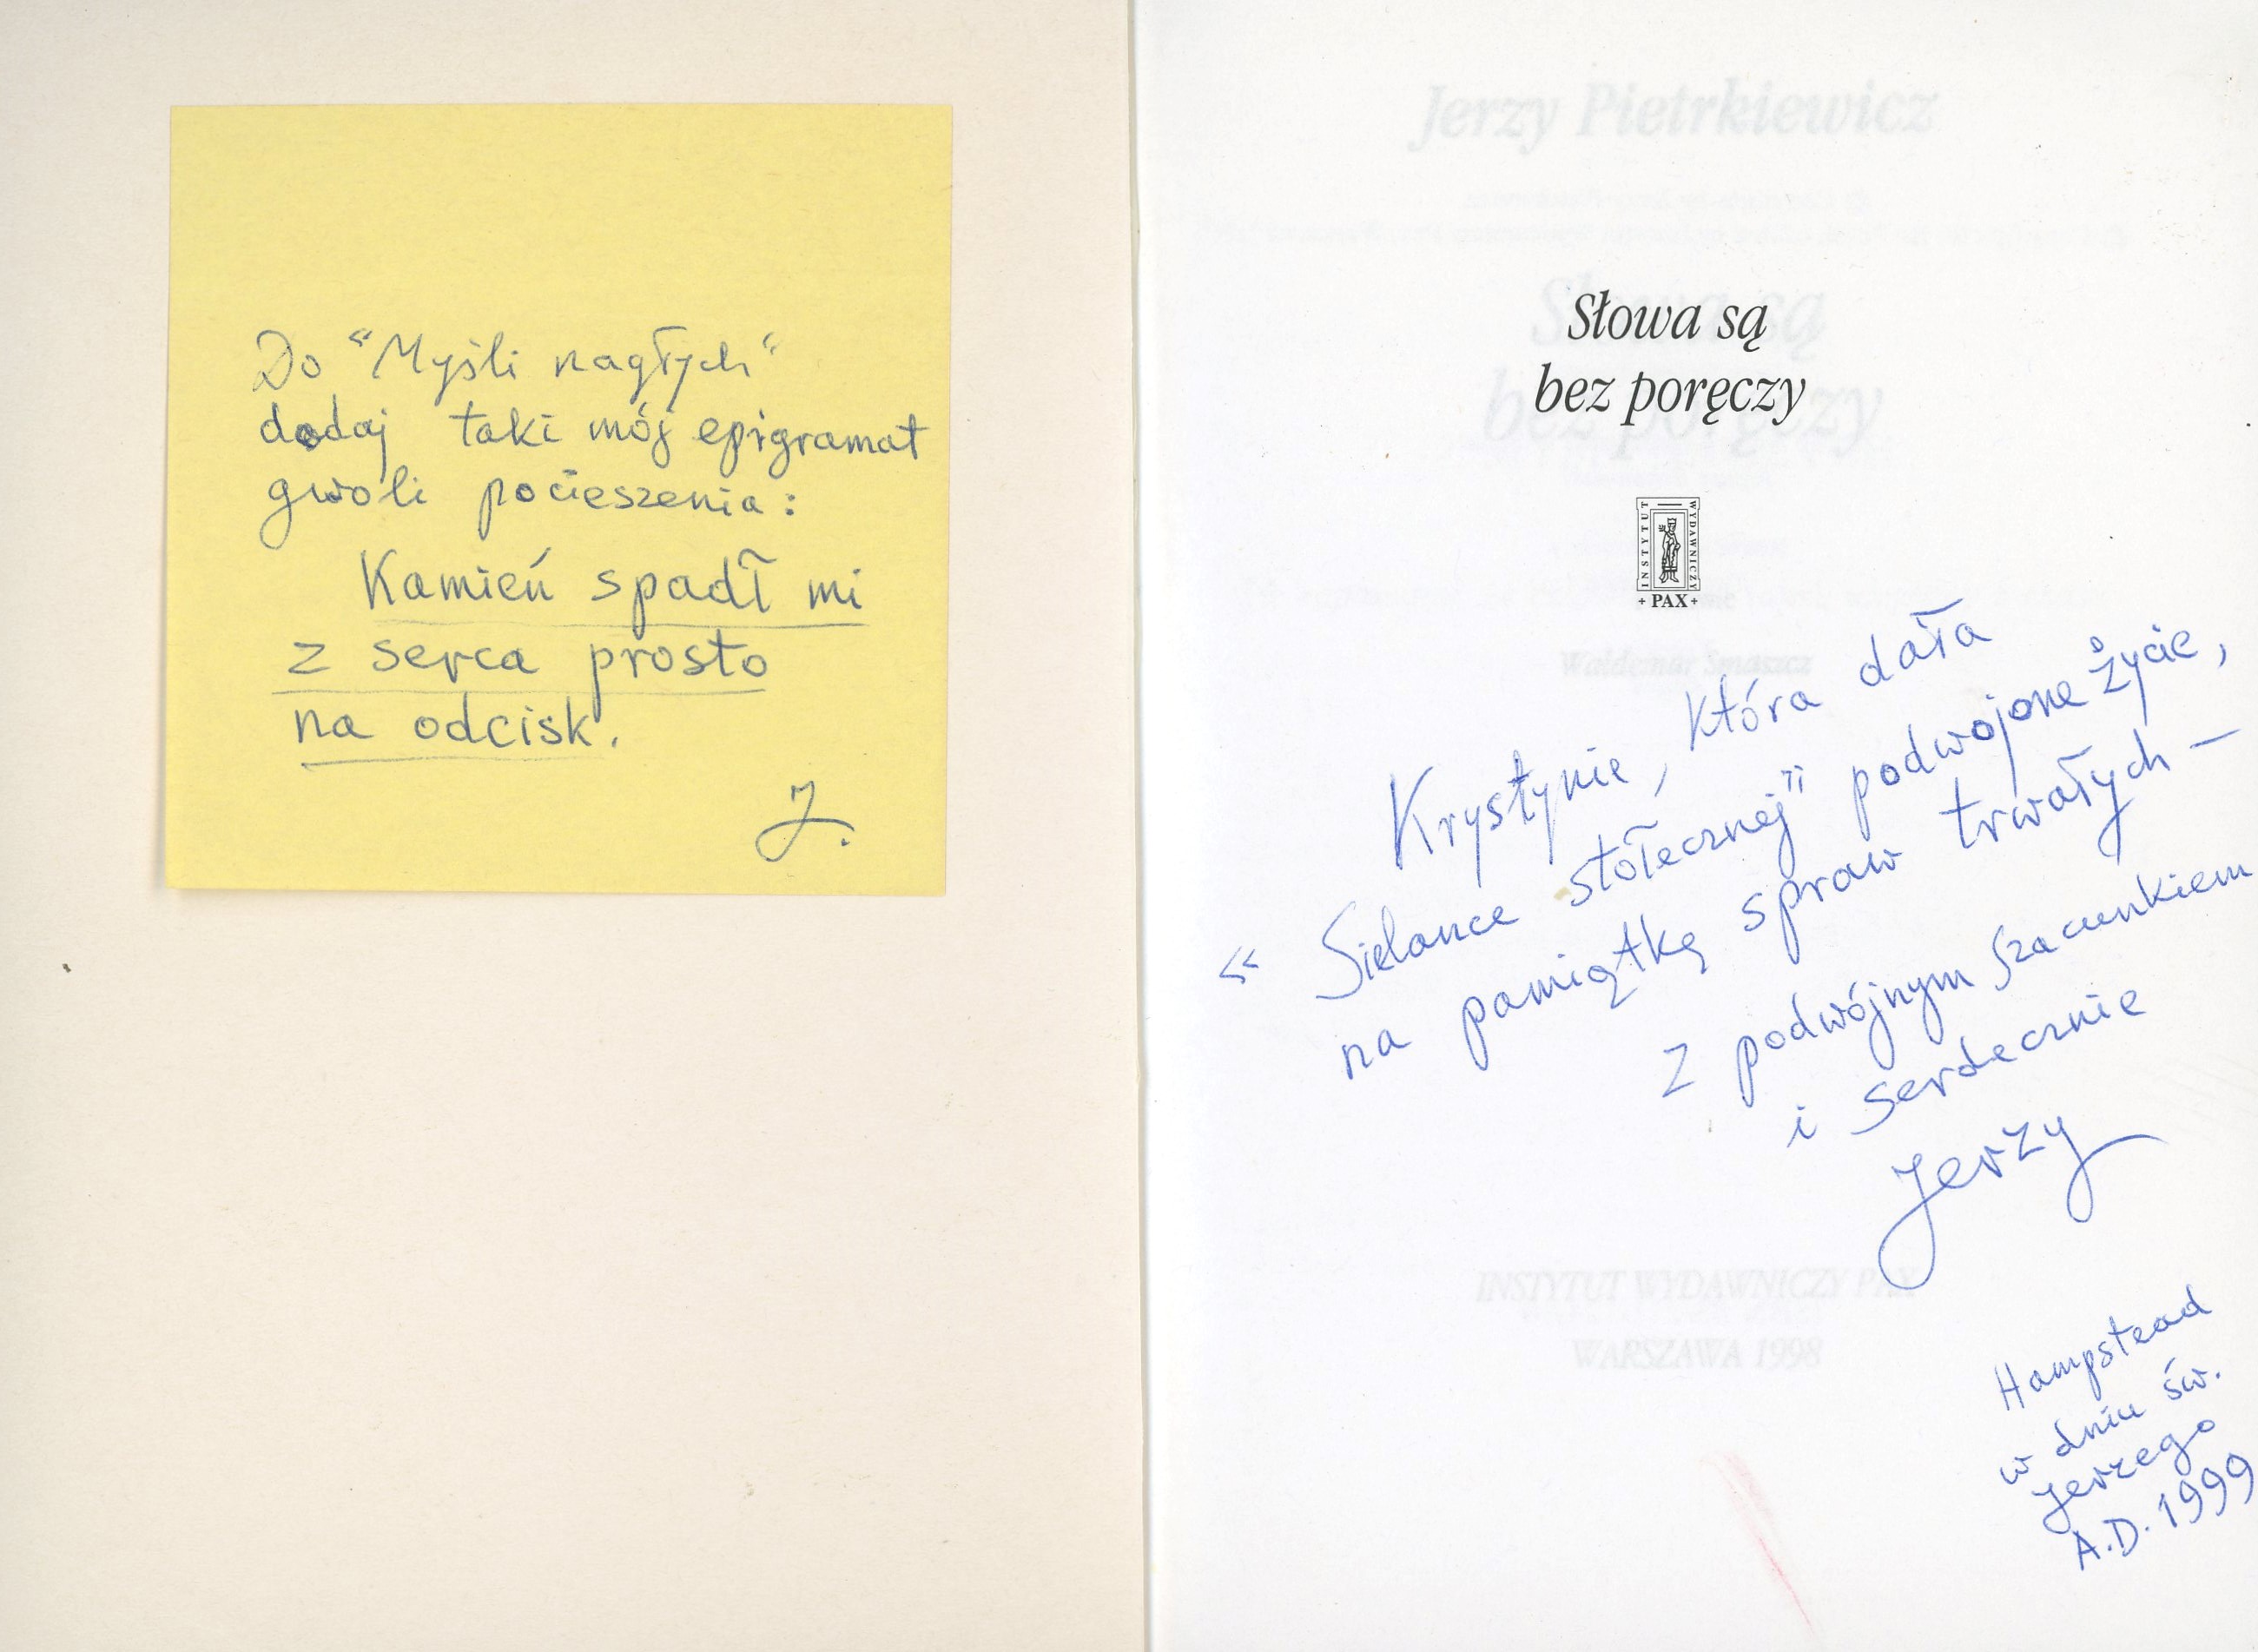 Do "Myśli nagłych"
dodaj taki mój epigramat
gwoli pocieszenia:
Kamień spadł mi
z serca prosto
na odcisk.
J.
Jerzy Pietrkiewicz
Słowa są
bez poręczy
Słowa są
bez poręczy
INSTYTUT WYDAWNICZY
+ PAX +
Waldemar Smaszcz
Krystynie, która dała
"Sielance stołecznej" podwojone życie,
na pamiątkę spraw trwałych –
z podwójnym szacunkiem
i serdecznie
Jerzy
INSTYTUT WYDAWNICZY PAX
WARSZAWA 1998
Hampstead
w dniu św.
Jerzego
A.D. 1999